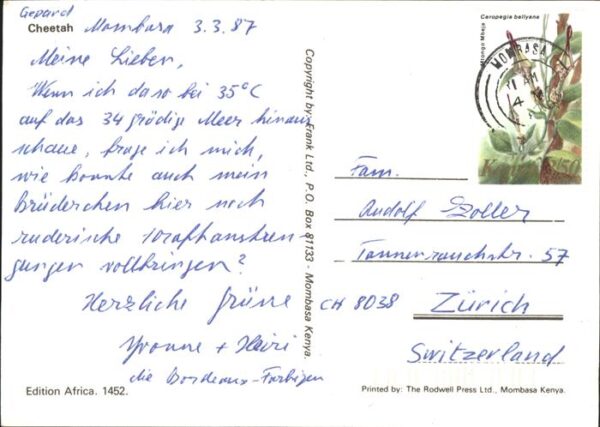 Gepard
Cheetah Mombasa 3.3.87
Meine Lieben,
Wenn ich da so bei 35°C
auf das 34 grädige Meer hinaus
schaue, frage ich mich,
wie konnte auch mein
Brüderchen hier noch
ruderische Kraftanstren-
gungen vollbringen?
Herzliche Grüsse
Yvonne + Heiri
die Bordeaux-Farbigen
Edition Africa. 1452.
Copyright by: Frank Ltd., P.O. Box 81133 - Mombasa Kenya.
Ceropegia ballyana
Mtongo Mbeja
MOMBASA
AM
Fam.
Rudolf Zoller
Tannenrauchstr. 57
CH 8038 Zürich
Switzerland
Printed by: The Rodwell Press Ltd., Mombasa Kenya.